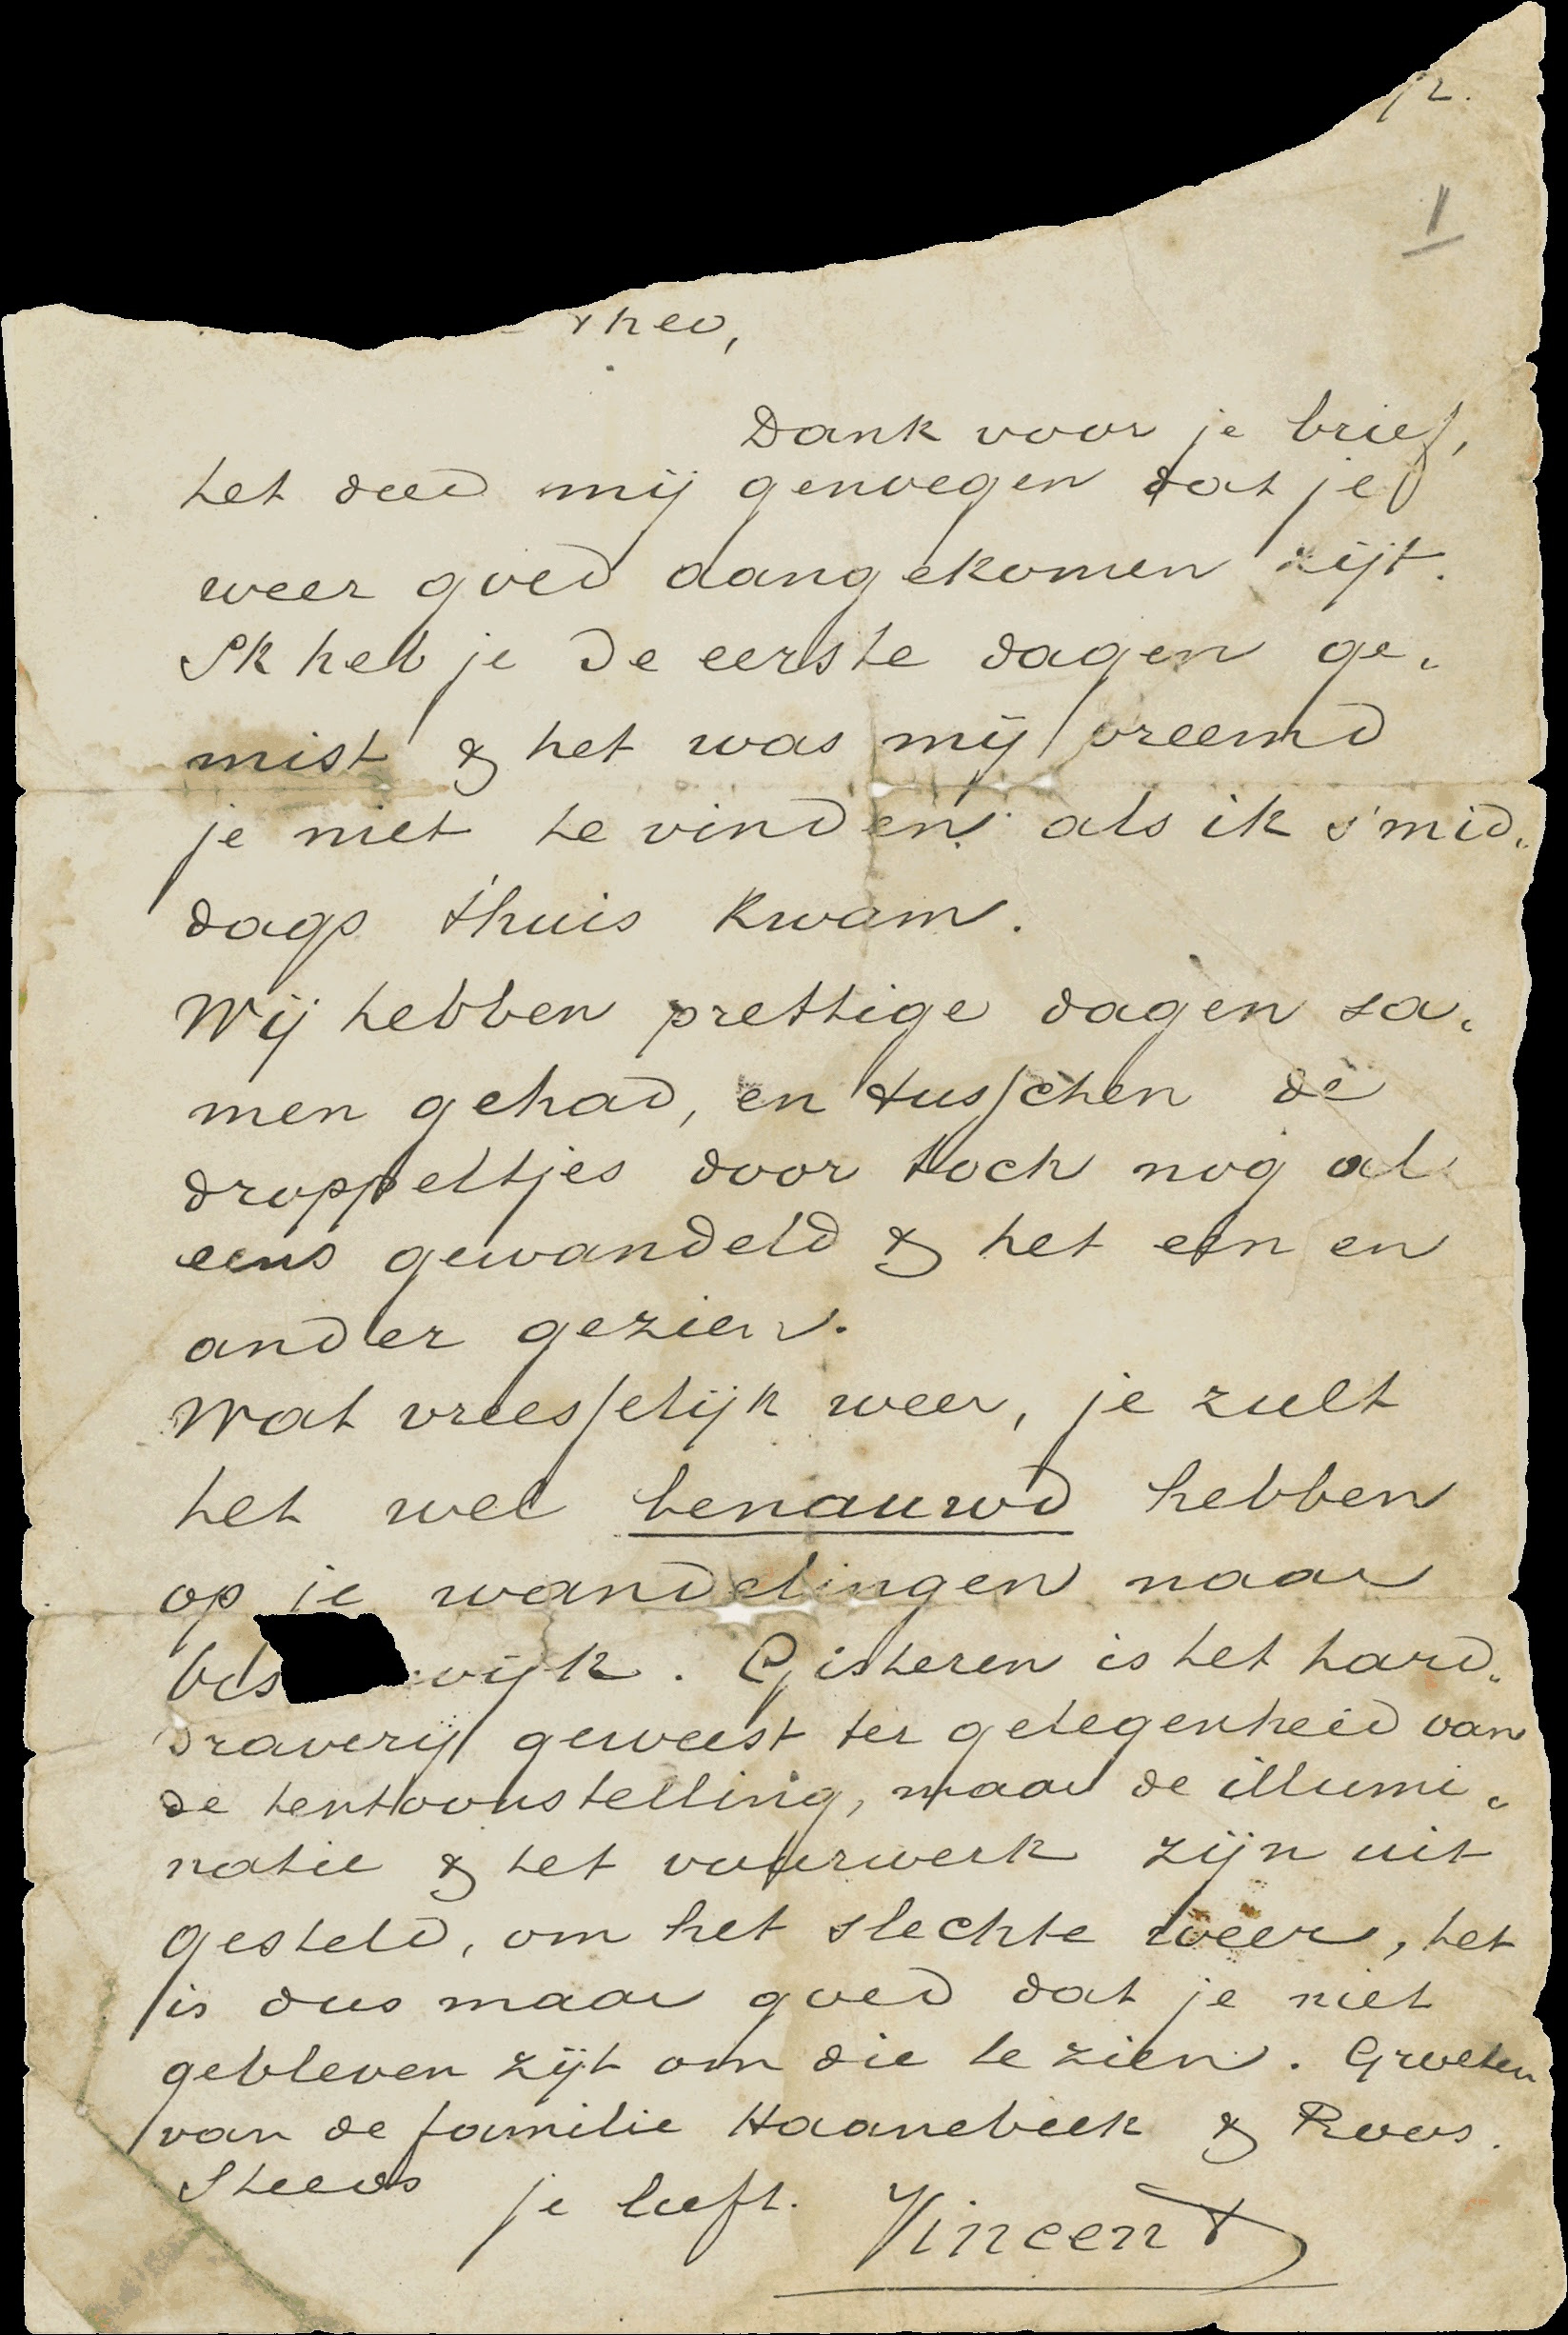 1
Theo,
Dank voor je brief,
het deed mij genoegen dat je
weer goed aangekomen zijt.
Ik heb je de eerste dagen ge-
mist & het was mij vreemd
je niet te vinden als ik s'mid-
dags t'huis kwam.
Wij hebben prettige dagen sa-
men gehad, en tusschen de
droppeltjes door toch nog al
eens gewandeld & het een en
ander gezien.
Wat vreesselijk weer, je zult
het wel benauwd hebben
op je wandelingen naar
wijk. Gisteren is het hard-
draverij geweest ter gelegenheid van
de tentoonstelling, maar de illumi-
natie & het vuurwerk zijn uit
gesteld, om het slechte weer, het
is dus maar goed dat je niet
gebleven zijt om die te zien. Groeten
van de familie Haanebeek & Roos.
Steeds je liefh. Vincent